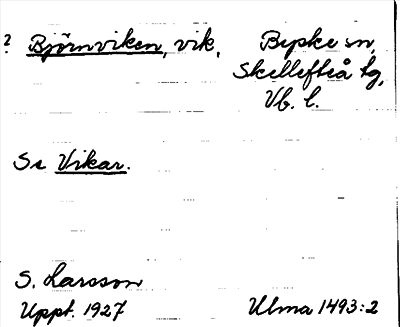 ? Björnviken, vik, Bepke sn,
Skellefteå tg,
Vb. l.
Se Vikar.
S. Larsson
Uppt. 1927 Ulma 1493:2